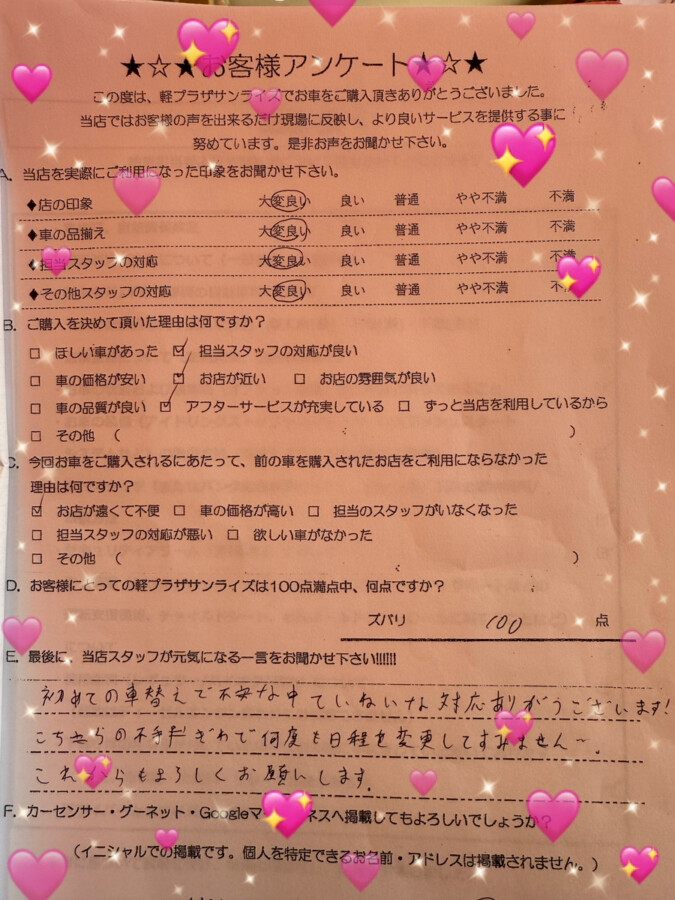 ★☆★お客様アンケート★☆★
この度は、軽プラザサンライズでお車をご購入頂きありがとうございました。
当店ではお客様の声を出来るだけ現場に反映し、より良いサービスを提供する事に
努めています。是非お声をお聞かせ下さい。
A. 当店を実際にご利用になった印象をお聞かせ下さい。
♦店の印象 大変良い 良い 普通 やや不満 不満
♦車の品揃え 大変良い 良い 普通 やや不満 不満
♦担当スタッフの対応 大変良い 良い 普通 やや不満 不満
♦その他スタッフの対応 大変良い 良い 普通 やや不満 不
B. ご購入を決めて頂いた理由は何ですか？
□ ほしい車があった ☑ 担当スタッフの対応が良い
□ 車の価格が安い ☑ お店が近い □ お店の雰囲気が良い
□ 車の品質が良い ☑ アフターサービスが充実している □ ずっと当店を利用しているから
□ その他 （ ）
C. 今回お車をご購入されるにあたって、前の車を購入されたお店をご利用にならなかった
理由は何ですか？
☑ お店が遠くて不便 □ 車の価格が高い □ 担当のスタッフがいなくなった
□ 担当スタッフの対応が悪い □ 欲しい車がなかった
□ その他 （ ）
D. お客様にとっての軽プラザサンライズは100点満点中、何点ですか？
ズバリ 100 点
E. 最後に、当店スタッフが元気になる一言をお聞かせ下さい!!!!!!
初めての車替えで不安な中ていねいな対応ありがうございます!
こちらの不手ぎわで何度も日程を変更してすみません〜。
これからもよろしくお願いします。
F. カーセンサー・グーネット・Googleマ ネスへ掲載してもよろしいでしょうか？
（イニシャルでの掲載です。個人を特定できるお名前・アドレスは掲載されません。）